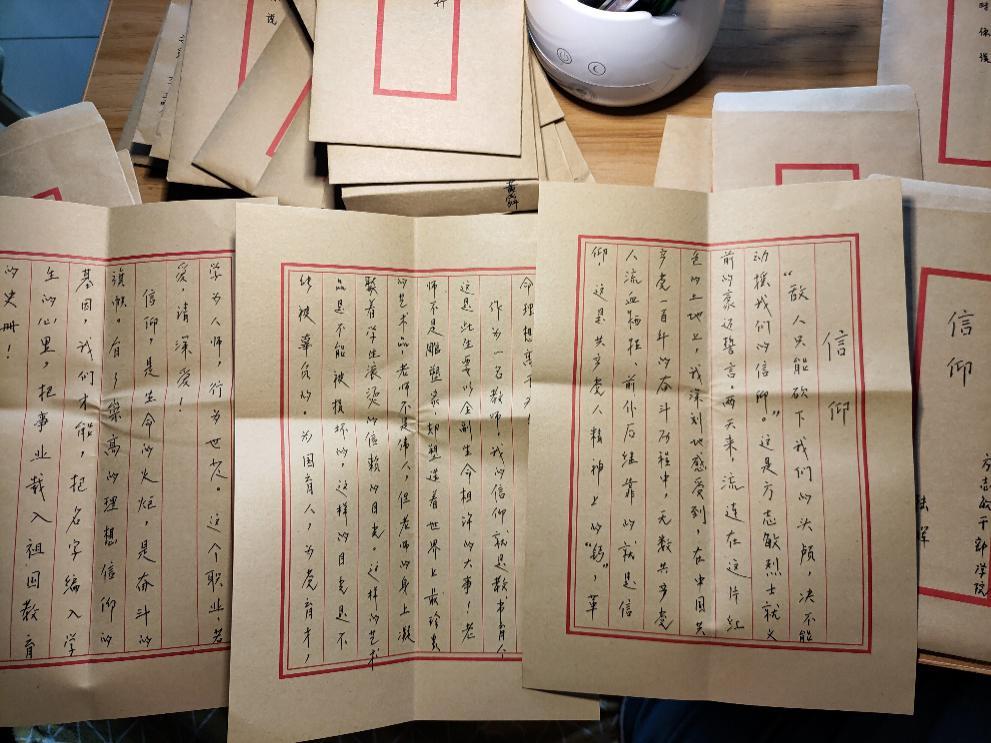 信仰
“敌人只能砍下我们的头颅，决不能
动摇我们的信仰”。这是方志敏烈士就义
前的豪迈誓言。两天来，流连在这片红
色的土地上，我深刻地感受到，在中国共
产党一百年的奋斗历程中，无数共产党
人流血牺牲、前仆后继靠的就是信
仰，这是共产党人精神上的“钙”，革
命理想高于
作为一名教师，我的信仰就是教书育人
这是此生要以全副生命相许的大事！老
师不是雕塑家，却塑造着世界上最珍贵
的艺术品，老师不是伟人，但老师的身上凝
聚着学生滚烫的信赖的目光。这样的艺术
品是不能被损坏的，这样的目光是不
能被辜负的。为国育人，为党育才，
学为人师，行为世范。这个职业，若
爱，请深爱！
信仰，是生命的火炬，是奋斗的
旗帜。有了崇高的理想信仰的
基因，我们才能，把名字编入学
生的心里，把事业载入祖国教育
的史册！
信仰
方志敏干部学院